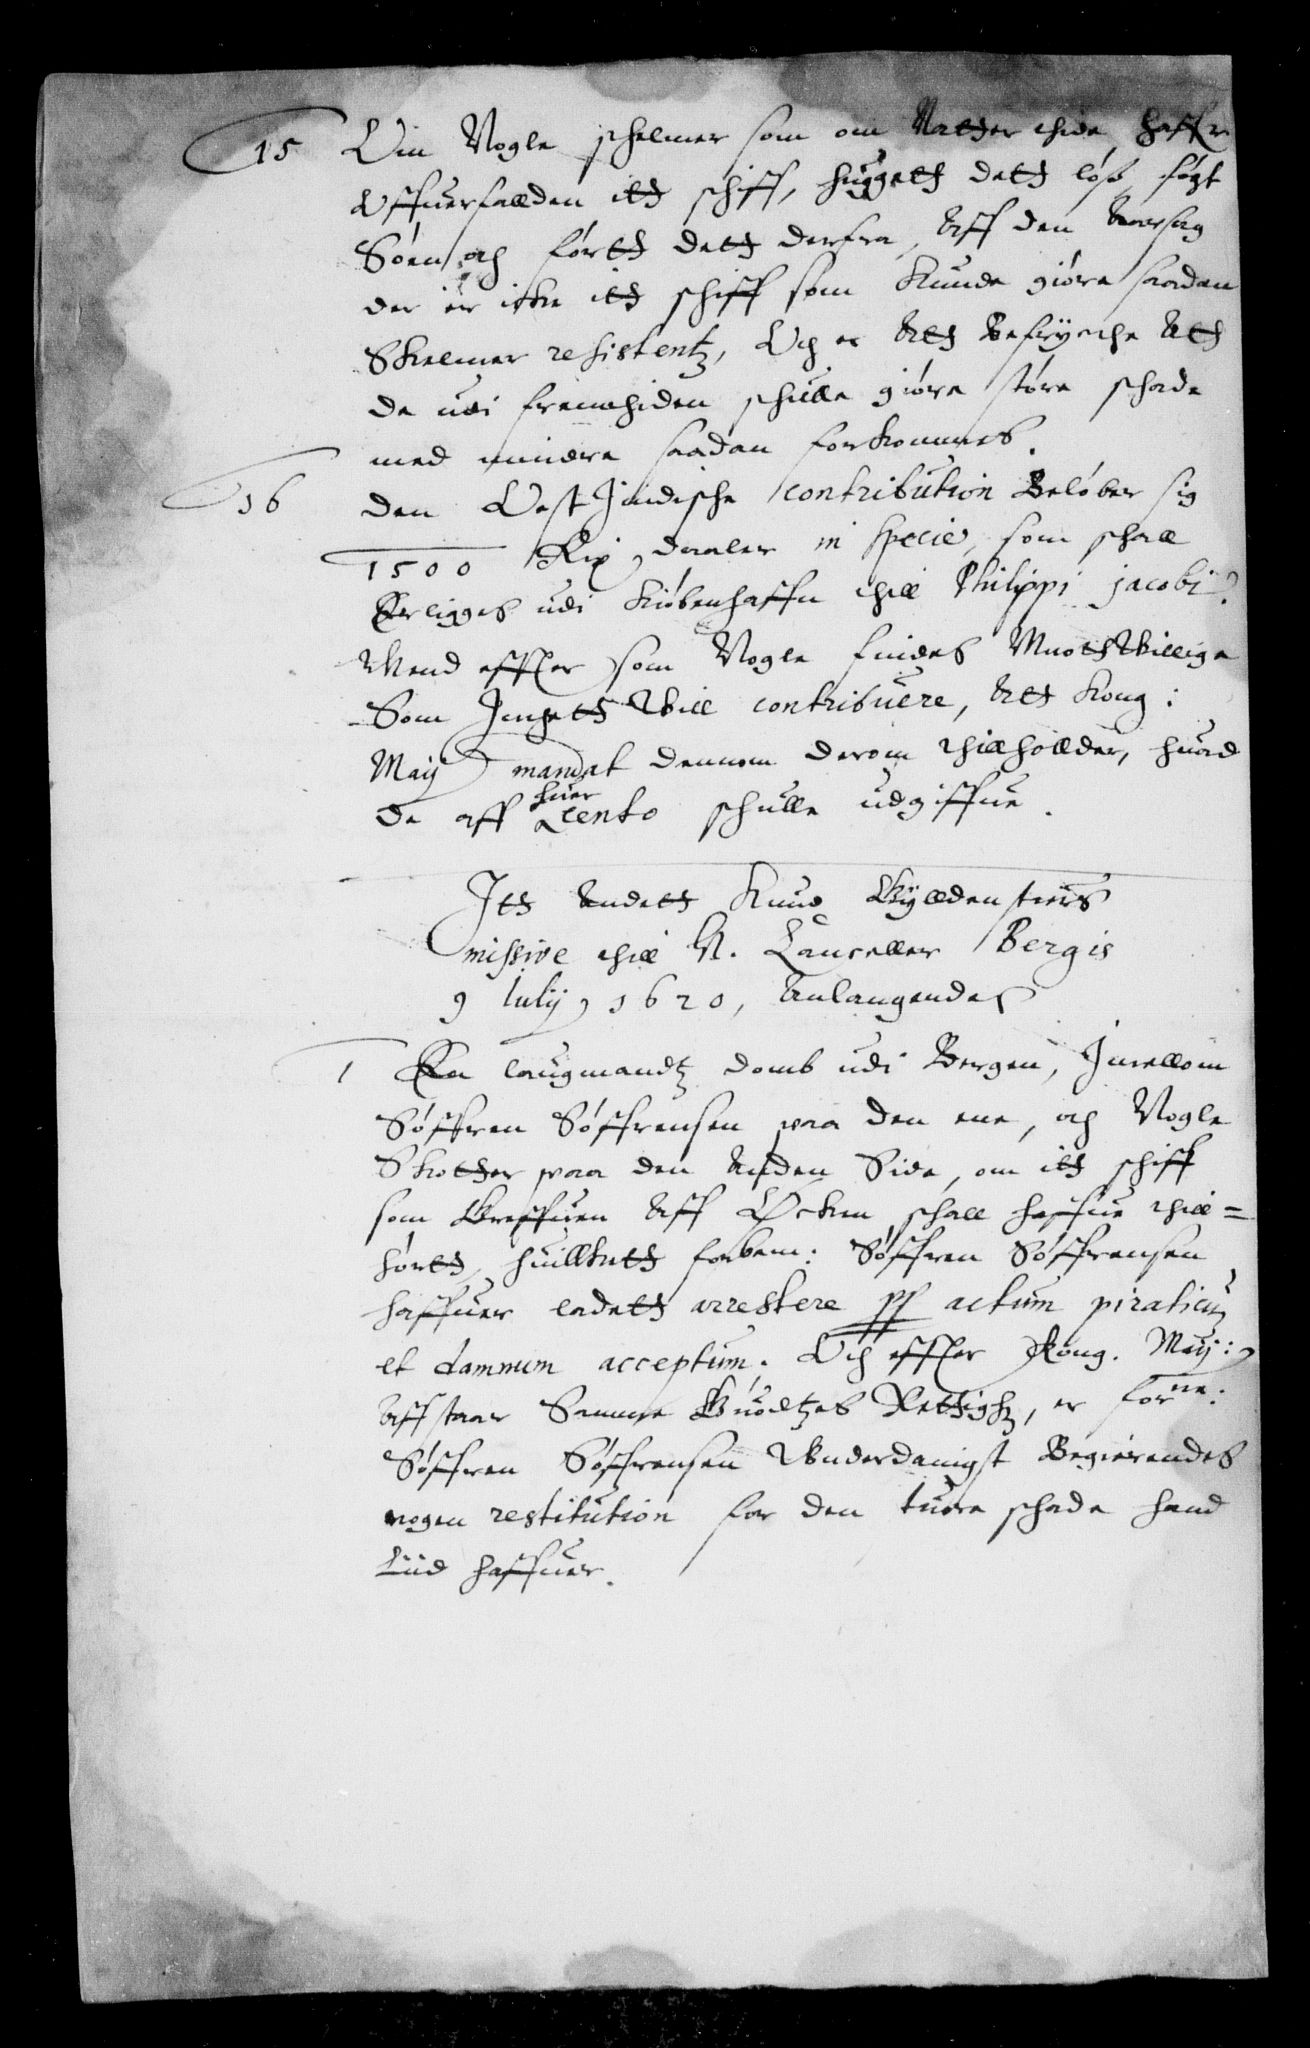 15 Om Nogle schelmer som om Natter thide haffr
Offuerfallden itt schiff, huggett dett løss, søgt
Søen och førtt dett derfra, Aff den Aarsag
der er icke itt schiff som kunde giøre saadan
Skelmer resistentz, Och er Att befrychte Att
de udi fremthiden schulle giøre støre schade
med mindre saadan forkommes.
16 den OstJndische contribution Beløber sig
1500 Rix daaler in specie, som schall
Erligges udi Kiøbenhaffn thill Philippi Jacobi.
Mend effter som Nogle findes Muottwillige
Som Jnthett Will contribuere, Att Kong:
Maij mandat dennom derom thillholder, huad
de aff huer cento schulle udgiffue.
Jtt Andett Knud Gylldenstiers
missive thill N. Canceller Bergis
9 Iulij 1620, Anlangendes
1 En laugmandtz domb udi Bergen, Jmellom
Søffren Søffrensen paa den ene, och Nogle
Skotter paa den Anden Side, om itt schiff
som Greffuen Aff Orkne schall haffue thill=
hørtt, huillkett forbem: Søffren Søffrensen
haffuer ladett arrestere pp actum piraticum
et damnum acceptum. Och effter Kong. Maij:
Affstaar Samme Guodtzes Rettighz, er forne:
Søffren Søffrensen Underdanigst Begierendes
nogen restitution for den suore schade hand
Liid haffuer.